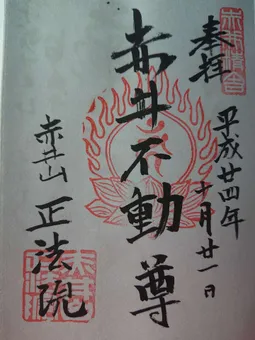 奉拝
平成廿四年
十月廿一日
赤井不動尊
赤井山
正法院